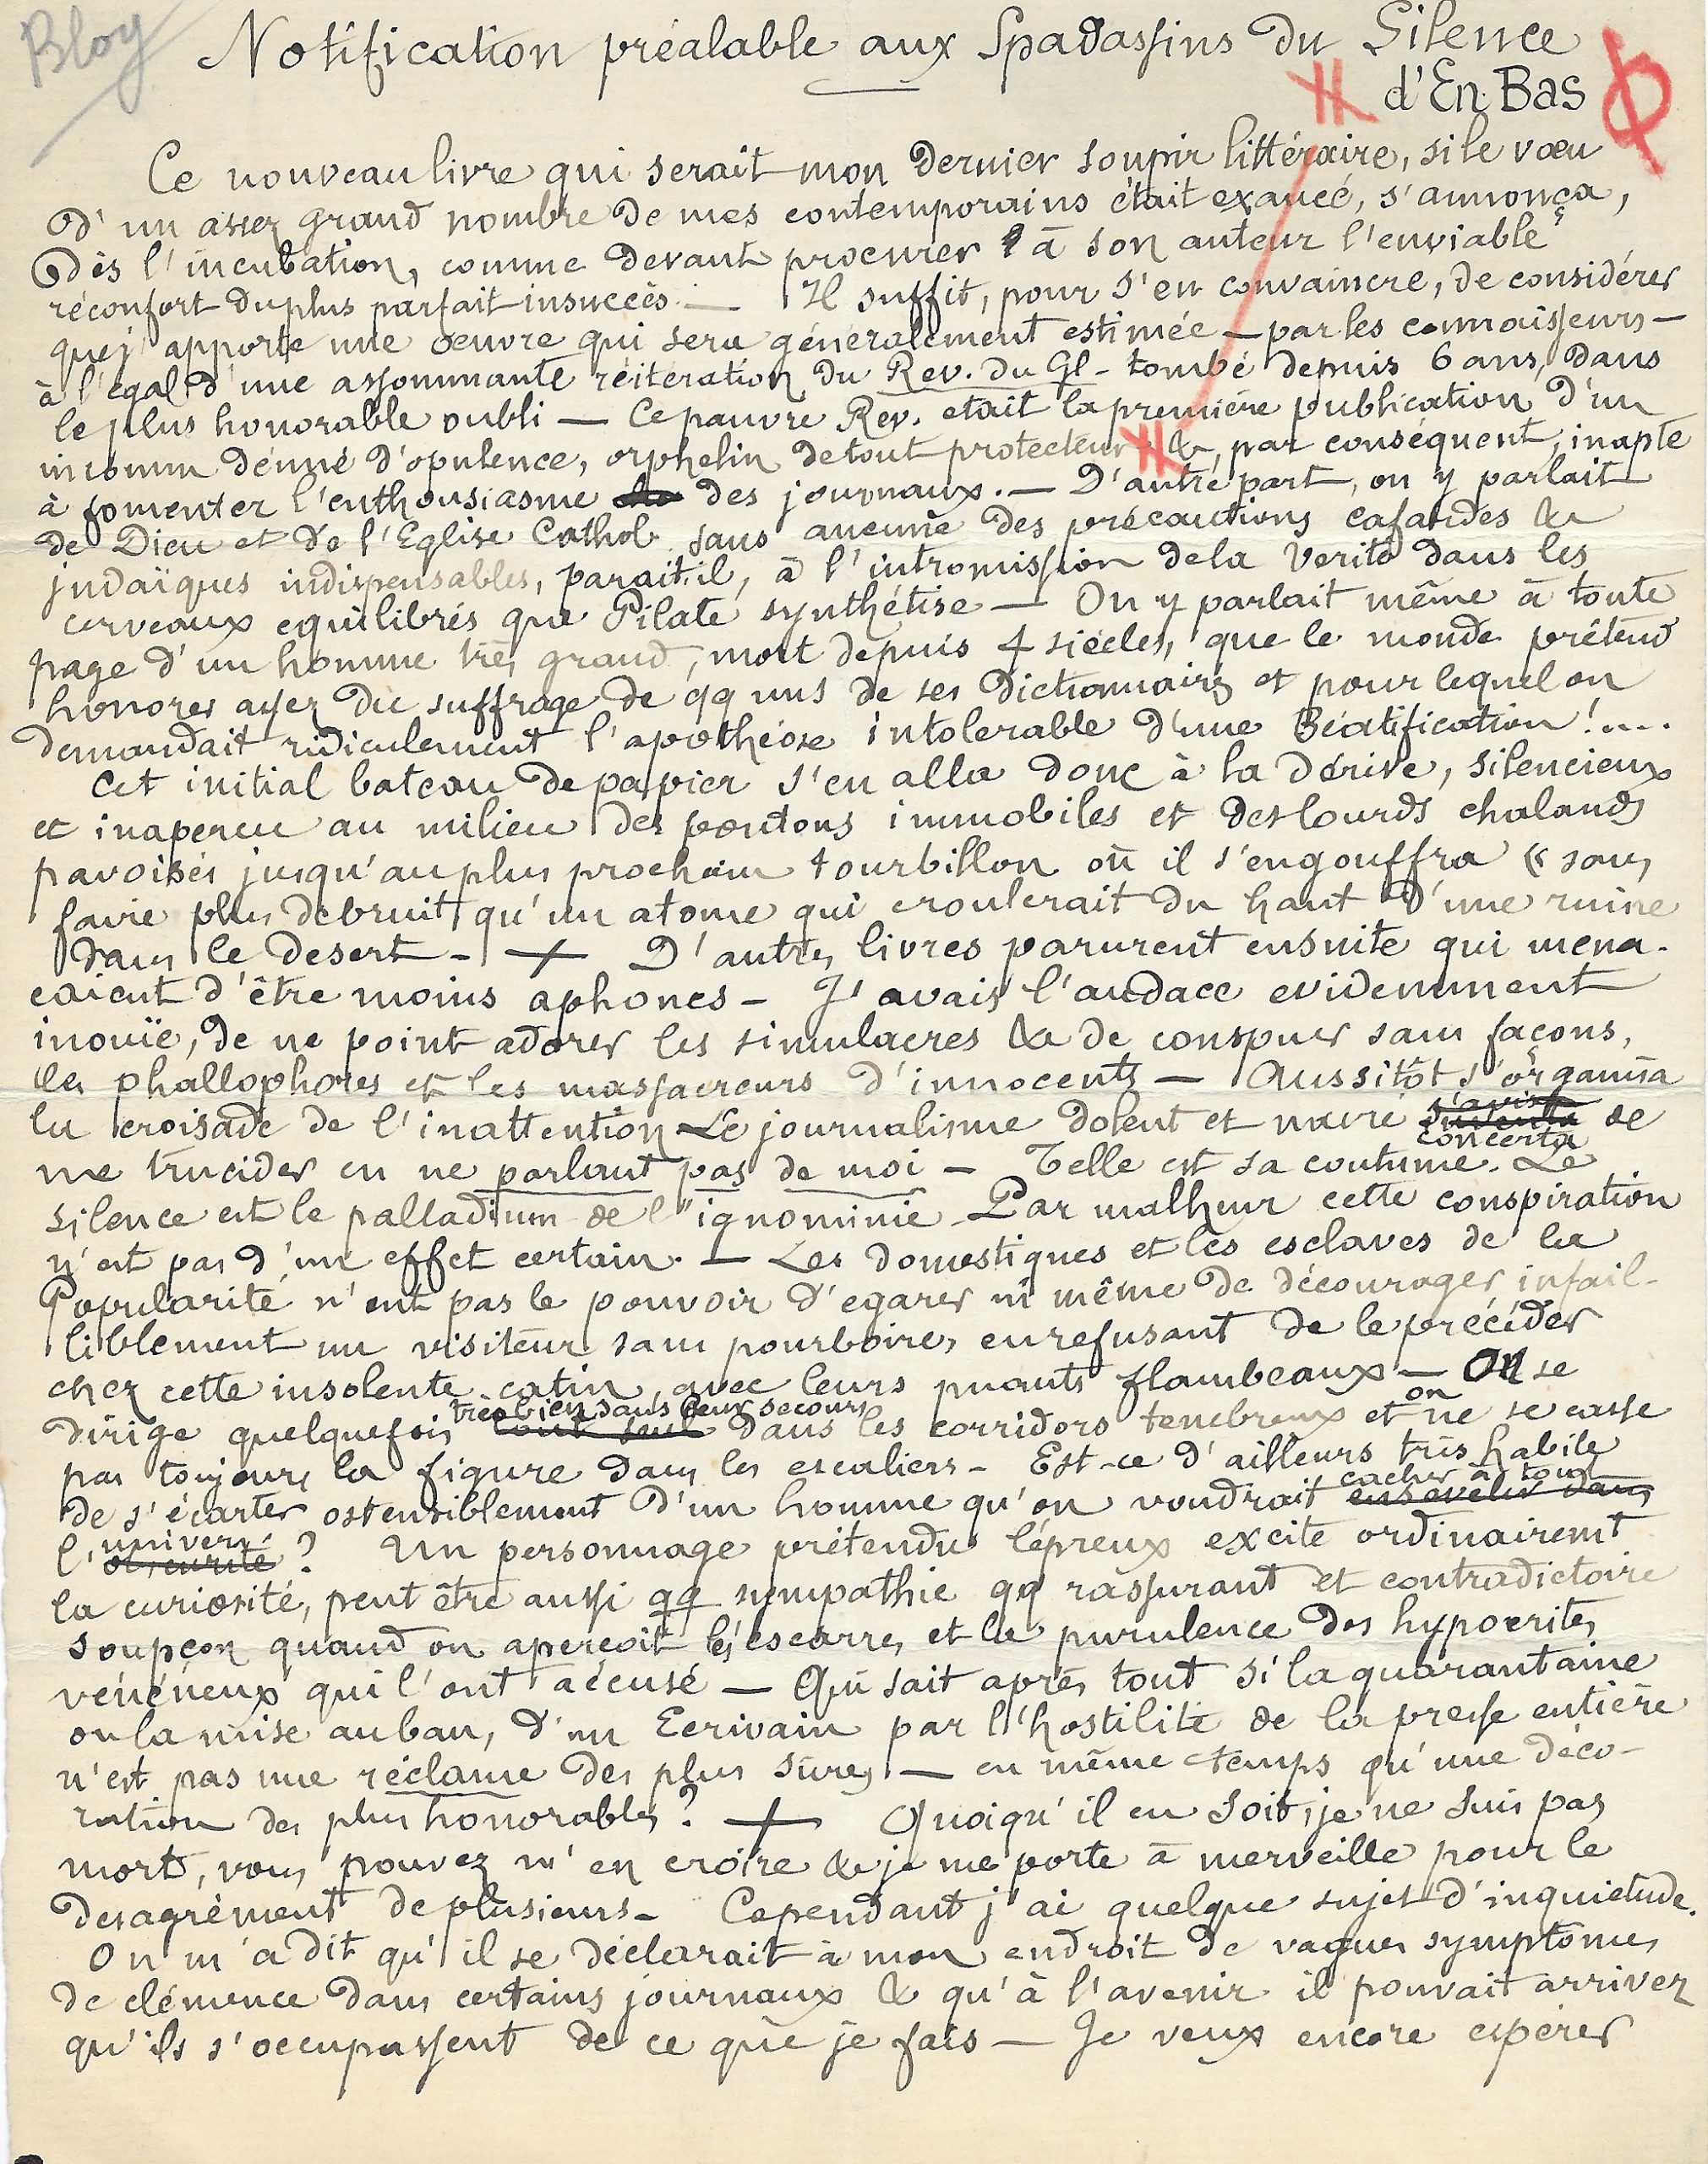 Bloy
Notification préalable aux Spadassins du Silence
d'En Bas
Ce nouveau livre qui serait mon dernier soupir littéraire, si le vœu
d'un assez grand nombre de mes contemporains était exaucé, s'annonça,
dès l'incubation, comme devant procurer à son auteur l'enviable
réconfort du plus parfait insuccès. — Il suffit, pour s'en convaincre, de considérer
que j'apporte une œuvre qui sera généralement estimée — par les connaisseurs —
à l'égal d'une assommante réitération du Rev. du Gl - tombé depuis 6 ans, dans
le plus honorable oubli — Ce pauvre Rev. etait la première publication d'un
inconnu dénué d'opulence, orphelin de tout protecteur &, par conséquent, inapte
à fomenter l'enthousiasme des journaux. — D'autre part, on y parlait
de Dieu et de l'Eglise Cathol. sans aucune des précautions cafardes &
judaïques indispensables, parait-il, à l'intromission de la Verité dans les
cerveaux equilibrés que Pilate synthétise — On y parlait même à toute
page d'un homme très grand, mort depuis 4 siècles, que le monde prétend
honorer assez du suffrage de qq uns de ses Dictionnaires et pour lequel on
demandait ridiculement l'apothéose intolerable d'une Béatification !....
Cet initial bateau de papier s'en alla donc à la dérive, silencieux
et inaperçu au milieu des pontons immobiles et des lourds chalands
pavoisés jusqu'au plus prochain tourbillon où il s'engouffra « sans
faire plus de bruit qu'un atome qui croulerait du haut d'une ruine
dans le desert - + D'autres livres parurent ensuite qui mena-
caient d'être moins aphones - J'avais l'audace evidemment
inouïe, de ne point adorer les simulacres & de conspuer sans façons,
les phallophores et les massacreurs d'innocents — Aussitôt s'organisa
la croisade de l'inattention Le journalisme dolent et navré s'avisa concerta de
me trucider en ne parlant pas de moi — Telle est sa coutume. Le
silence est le palladium de l'ignominie - Par malheur cette conspiration
n'est pas d'un effet certain. — Les domestiques et les esclaves de la
Popularité n'ont pas le pouvoir d'egarer ni même de décourager infail-
liblement un visiteur sans pourboires, en refusant de le précéder
chez cette insolente catin, avec leurs puants flambeaux — On se
dirige quelquefois tout seul très bien sans leur secours dans les corridors tenebreux et on ne se casse
pas toujours la figure dans les escaliers - Est-ce d'ailleurs très habile
de s'écarter ostensiblement d'un homme qu'on voudrait ensevelir dans cacher à tout
l'obscurité univers ? Un personnage prétendu lépreux excite ordinairemt
la curiosité, peut être aussi qq sympathie qq rassurant et contradictoire
soupçon quand on apercoit les escarres et la purulence des hypocrites
vénéneux qui l'ont accusé — Qui sait après tout si la quarantaine
ou la mise au ban, d'un Ecrivain par l'hostilité de la presse entière
n'est pas une réclame des plus sûres — en même temps qu'une déco-
ration des plus honorables ? + Quoiqu'il en soit, je ne suis pas
mort, vous pouvez m'en croire & je me porte à merveille pour le
desagrément de plusieurs - Cependant j'ai quelque sujet d'inquietude.
On m'a dit qu'il se déclarait à mon endroit de vagues symptômes
de clémence dans certains journaux & qu'à l'avenir il pouvait arriver
qu'ils s'occupassent de ce que je fais — Je veux encore espérer